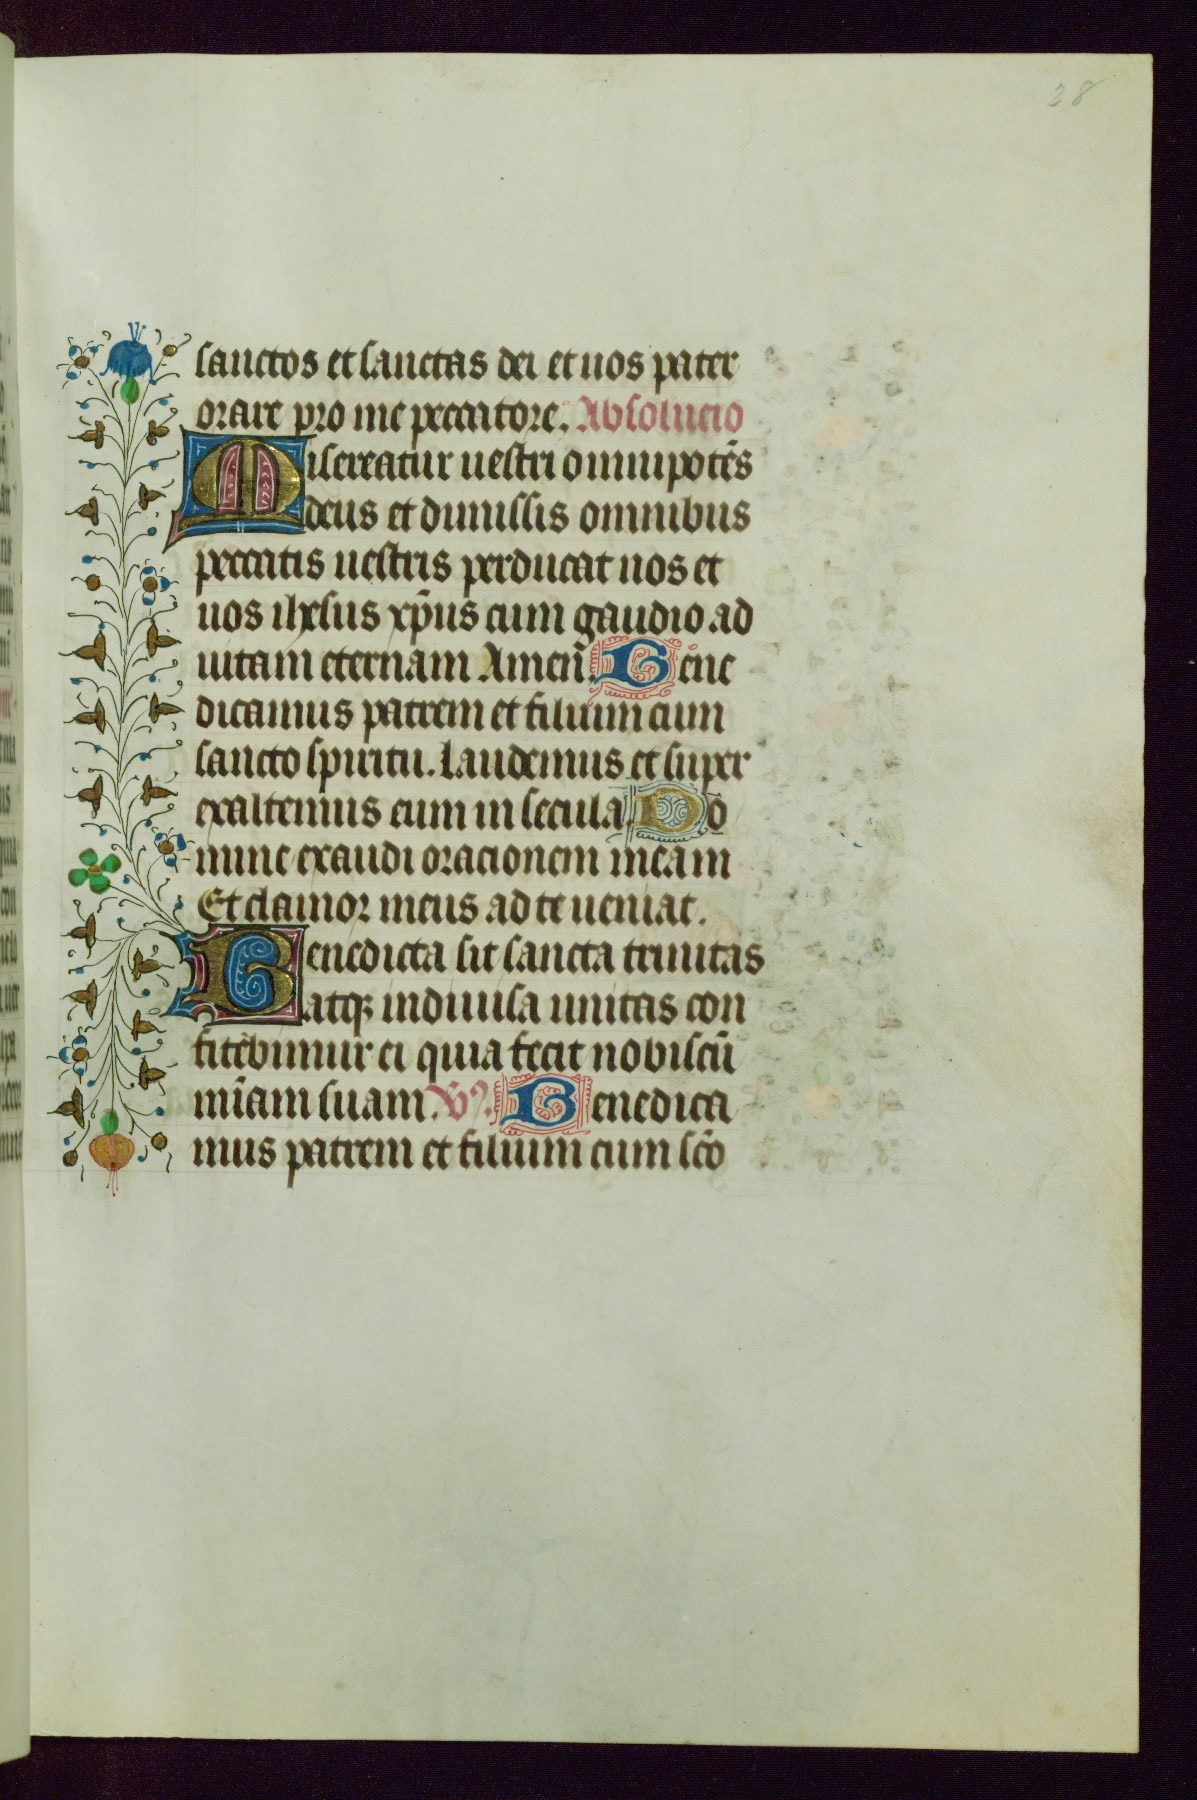 28
sanctos et sanctas dei et uos pater
orare pro me peccatore. Absolucio
Misereatur uestri omnipotēs
deus et dimissis omnibus
peccatis uestris perducat nos et
uos ihesus xp̄us cum gaudio ad
uitam eternam Amen̄. Bene
dicamus patrem et filium cum
sancto spiritu. Laudemus et super
exaltemus eum in secula. Do
mine exaudi oracionem meam
Et clamor meus ad te ueniat.
Benedicta sit sancta trinitas
atqꝫ indiuisa unitas con
fitebimur ei quia fecit nobiscū
mīam suam. V. Benedica
mus patrem et filium cum sc̄o